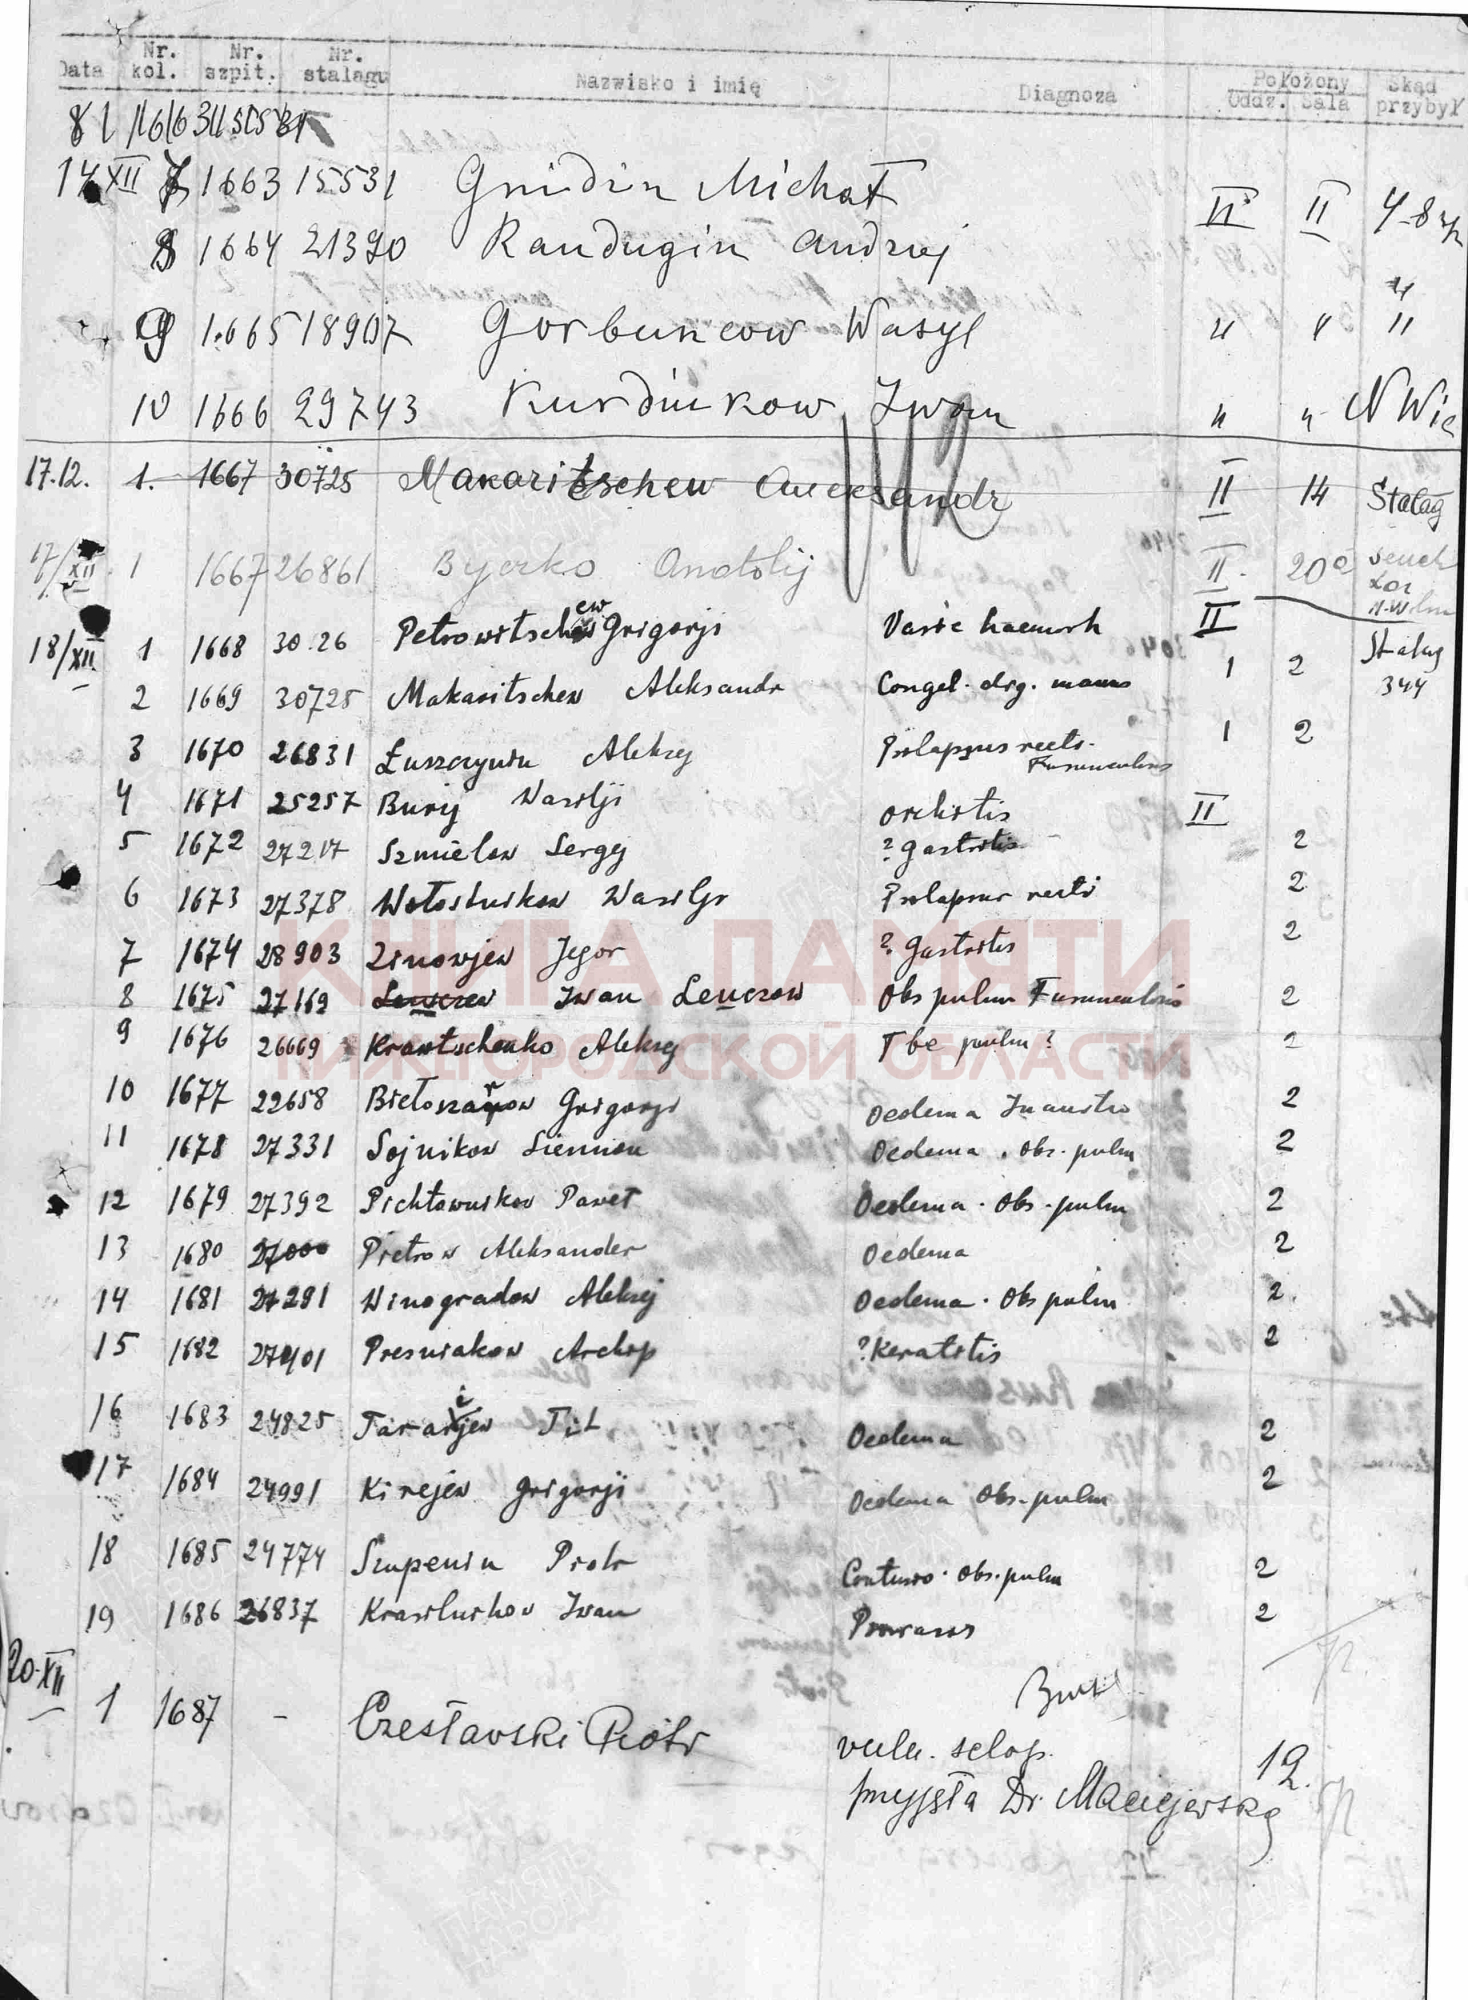 Data Nr. kol. Nr. szpit. Nr. stalagu Nazwisko i imię Diagnoza Położony Oddz. Sala Skąd przybył
14 XII 7 1663 15531 Gnidin Michał II II
8 1664 21390 Randugin Andrzej "
9 1665 18907 Gorbuncow Wasyl " " "
10 1666 29743 Kurdiukow Iwan " " N Wie
17.12. 1. 1667 30725 Makaritschew Alecksandr II 14 Stalag
17/XII 1 1667 26861 Byczko Anatolij II 20a
18/XII 1 1668 30.26 Petrowitschew Grigorji Varic haemorh II Stalag 344
2 1669 30725 Makaritschew Aleksandr Congel. dig. manus 1 2
3 1670 26831 Łuszczynin Aleksej Prolapsus recti. Furunculosis 1 2
4 1671 25257 Burij Wasilji Orchitis II
5 1672 27217 Szmielow Sergej ? Gastritis 2
6 1673 27378 Wołostnikow Wasilji Prolapsus recti 2
7 1674 28903 Zinowjew Jegor ? Gastritis 2
8 1675 27169 Lewczew Iwan Leuczow Obs pulm Furunculosis 2
9 1676 26669 Krawtschenko Aleksej Tbc pulm ? 2
10 1677 22658 Grigorji Oedema 2
11 1678 27331 Sojnikow Siemion Oedema . Obs. pulm 2
12 1679 27392 Pichtownikow Paweł Oedema . Obs. pulm 2
13 1680 27000 Pietrow Aleksander Oedema 2
14 1681 27291 Winogradow Aleksej Oedema . Obs pulm 2.
15 1682 27401 Presniakow Archip ? Keratitis 2
16 1683 24825 Tit Oedema 2
17 1684 24991 Kirejew Grigorji Oedema Obs. pulm 2
18 1685 24774 Szupenin Piotr Contusio . Obs. pulm 2
19 1686 26837 Krasiluchow Iwan 2
20.XII 1 1687 - Czesławski Piotr vuln. sclop. 12.
przyjęła Dr. Maciejewska
КНИГА ПАМЯТИ
НИЖЕГОРОДСКОЙ ОБЛАСТИ
ПАМЯТЬ НАРОДА